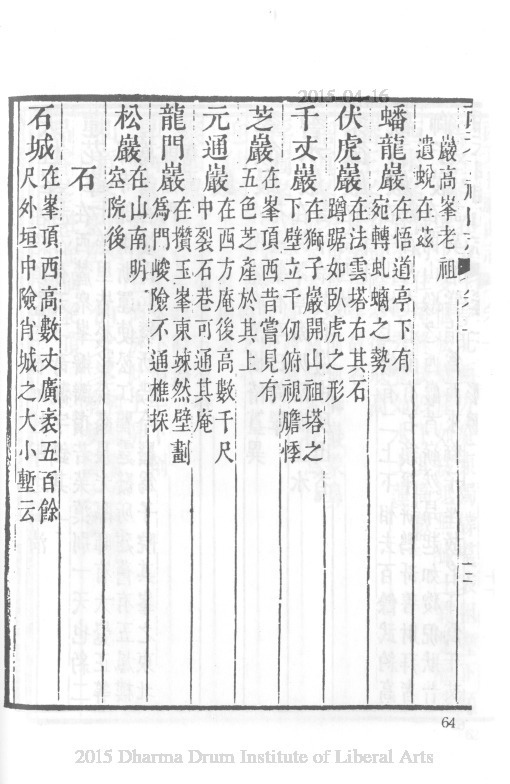 2015-04-16
巖高峯老祖
遺蛻在茲
蟠龍巖在悟道亭下有
宛轉虬螭之勢
伏虎巖在法雲塔右其石
蹲踞如臥虎之形
千丈巖在獅子巖開山祖塔之
下壁立千仞俯視膽悸
芝巖在峯頂西昔嘗見有
五色芝產於其上
元通巖在西方庵後高數千尺
中裂石巷可通其庵
龍門巖在攢玉峯東竦然壁劃
爲門峻險不通樵採
松巖在山南明
空院後
石
石城在峯頂西高數丈廣袤五百餘
尺外垣中險肖城之大小塹云
64
2015 Dharma Drum Institute of Liberal Arts